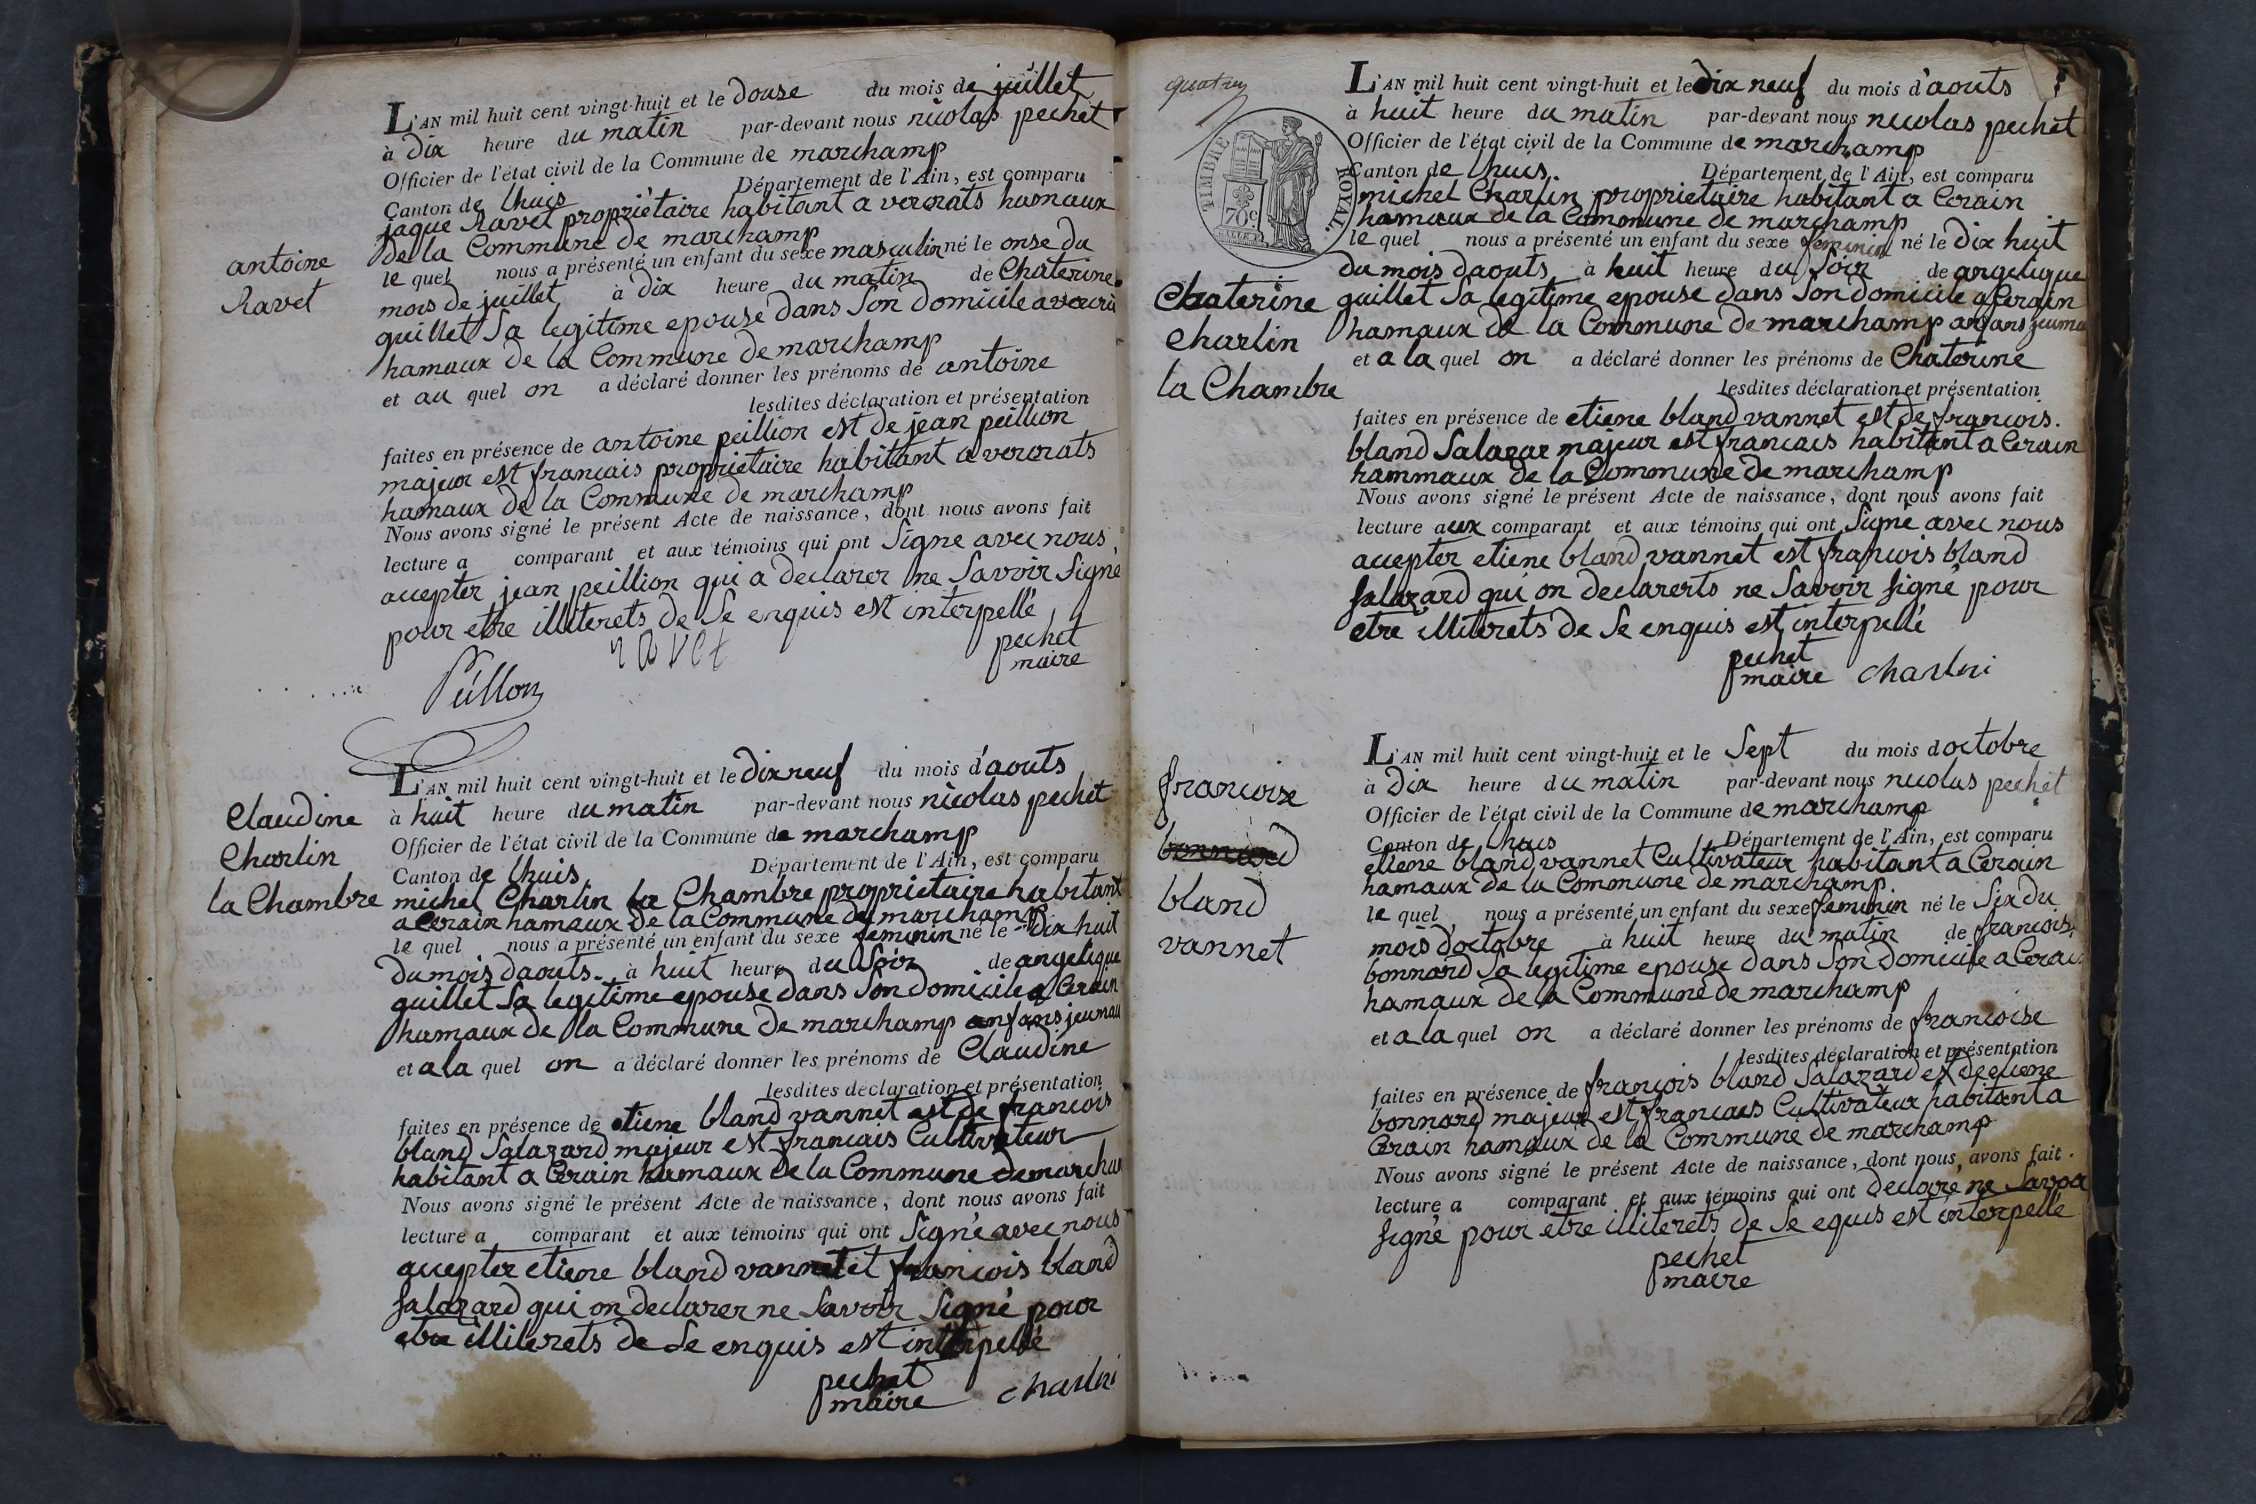 L'AN mil huit cent vingt-huit et le douse du mois de juillet
à dix heure du matin par-devant nous nicolas pechet
Officier de l'état civil de la Commune de marchamp
Canton de lhuis Département de l'Ain, est comparu
jaque Ravet propriétaire habitant a hamaux
de la Commune de marchamp
antoine
Ravet
le quel nous a présenté un enfant du sexe masculin né le onse du
mois de juillet à dix heure du matin de Chaterine
guillet Sa legitime epouse dans Son domicile a
hamaux de la Commune de marchamp
et au quel on a déclaré donner les prénoms de antoine
lesdites déclaration et présentation
faites en présence de antoine peillion est de jean peillion
majeur est francais proprietaire habitant a
hamaux de la Commune de marchamp
Nous avons signé le présent Acte de naissance, dont nous avons fait
lecture a comparant et aux témoins qui ont Signe avec nous
accepter jean peillion qui a declarer ne Savoir Signe
pour etre illiterets de Se enquis est interpellé
ravet pechet
maire
L'AN mil huit cent vingt-huit et le dix neuf du mois d'aouts
à huit heure du matin par-devant nous nicolas pechet
Officier de l'état civil de la Commune de marchamp
Canton de lhuis Département de l'Ain, est comparu
Claudine
Charlin
la Chambre
michel Charlin la Chambre proprietaire habitant
a Cerain hamaux de la Commune de marchamp
le quel nous a présenté un enfant du sexe feminin né le Dix huit
du mois daouts à huit heure du Soir de angelique
guillet Sa legitime epouse dans Son domicile a Cerain
hamaux de la Commune de marchamp anfans jeumau
et a la quel on a déclaré donner les prénoms de Claudine
lesdites déclaration et présentation
faites en présence de etiene bland vannet est de francois
bland Salazard majeur est francais Cultivateur
habitant a Cerain hamaux de la Commune de marcham
Nous avons signé le présent Acte de naissance, dont nous avons fait
lecture a comparant et aux témoins qui ont Signé avec nous
accepter etiene bland vannet et francois bland
Salazard qui on declarer ne Savoir Signé pour
etre illiterets de Se enquis est interpellé
pechet
maire charlin
TIMBRE ROYAL
70 c
L'AN mil huit cent vingt-huit et le dix neuf du mois d'aouts
à huit heure du matin par-devant nous nicolas pechet
Officier de l'état civil de la Commune de marchamp
Canton de lhuis Département de l'Ain, est comparu
michel Charlin proprietaire habitant a Cerain
hamaux de la Commune de marchamp
le quel nous a présenté un enfant du sexe feminin né le dix huit
du mois daouts à huit heure du Soir de angelique
Chaterine
Charlin
la Chambre
guillet Sa legitime epouse dans Son domicile a Cerain
hamaux de la Commune de marchamp anfans jeumau
et a la quel on a déclaré donner les prénoms de Chaterine
lesdites déclaration et présentation
faites en présence de etiene bland vannet est de francois
bland Salazar majeur est francais habitant a Cerain
hammaux de la Commune de marchamp
Nous avons signé le présent Acte de naissance, dont nous avons fait
lecture aux comparant et aux témoins qui ont Signé avec nous
accepter etiene bland vannet est francois bland
Salazard qui on declarerts ne Savoir Signé pour
etre illiterets de Se enquis est interpellé
pechet
maire charlin
L'AN mil huit cent vingt-huit et le Sept du mois doctobre
à dix heure du matin par-devant nous nicolas pechet
Officier de l'état civil de la Commune de marchamp
Canton de lhuis Département de l'Ain, est comparu
francoise
bonnard
bland
vannet
etiene bland vannet Cultivateur habitant a Cerain
hamaux de la Commune de marchamp
le quel nous a présenté un enfant du sexe feminin né le Six du
mois doctobre à huit heure du matin de francoise
bonnard Sa legitime epouse dans Son domicile a Cerain
hamaux de la Commune de marchamp
et a la quel on a déclaré donner les prénoms de francoise
lesdites déclaration et présentation
faites en présence de francois bland Salazard est de etiene
bonnard majeur est francais Cultivateur habitant a
Cerain hamaux de la Commune de marchamp
Nous avons signé le présent Acte de naissance, dont nous avons fait
lecture a comparant et aux témoins qui ont declaré ne Savoir
Signé pour etre illiterets de Se equis est interpellé
pechet
maire